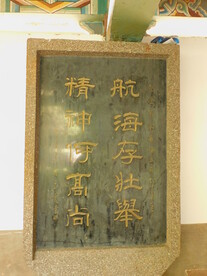 航海存壯舉
精神何高尚